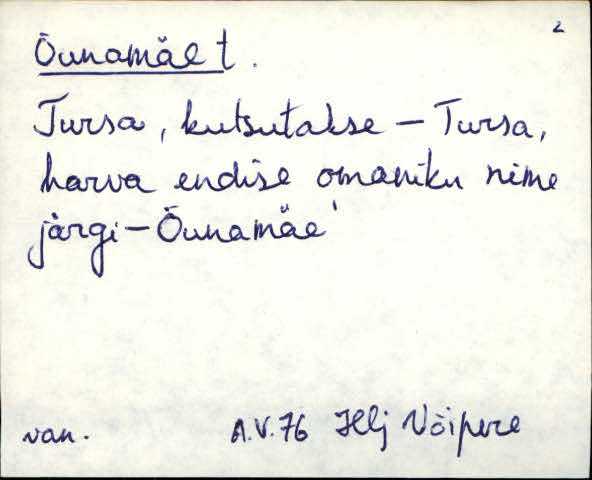 2
Õunamäe t.
Tursa, kutsutakse – Tursa,
harva endise omaniku nime
järgi – Õunamäe'
van. A.V.76 Hlj Võipere